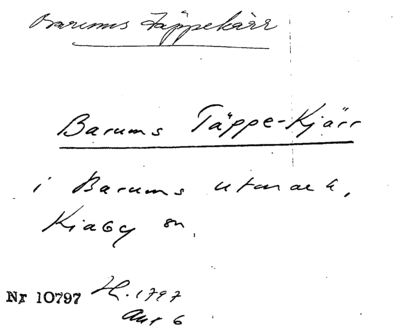 Barums Täppekärr
Barums Täppe-Kjärr
i Barums utmark,
Kiaby sn.
Nr 10797 H. 1797
Aug 6